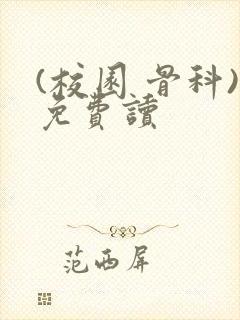 (校园 骨科)
免費讀
范西屏